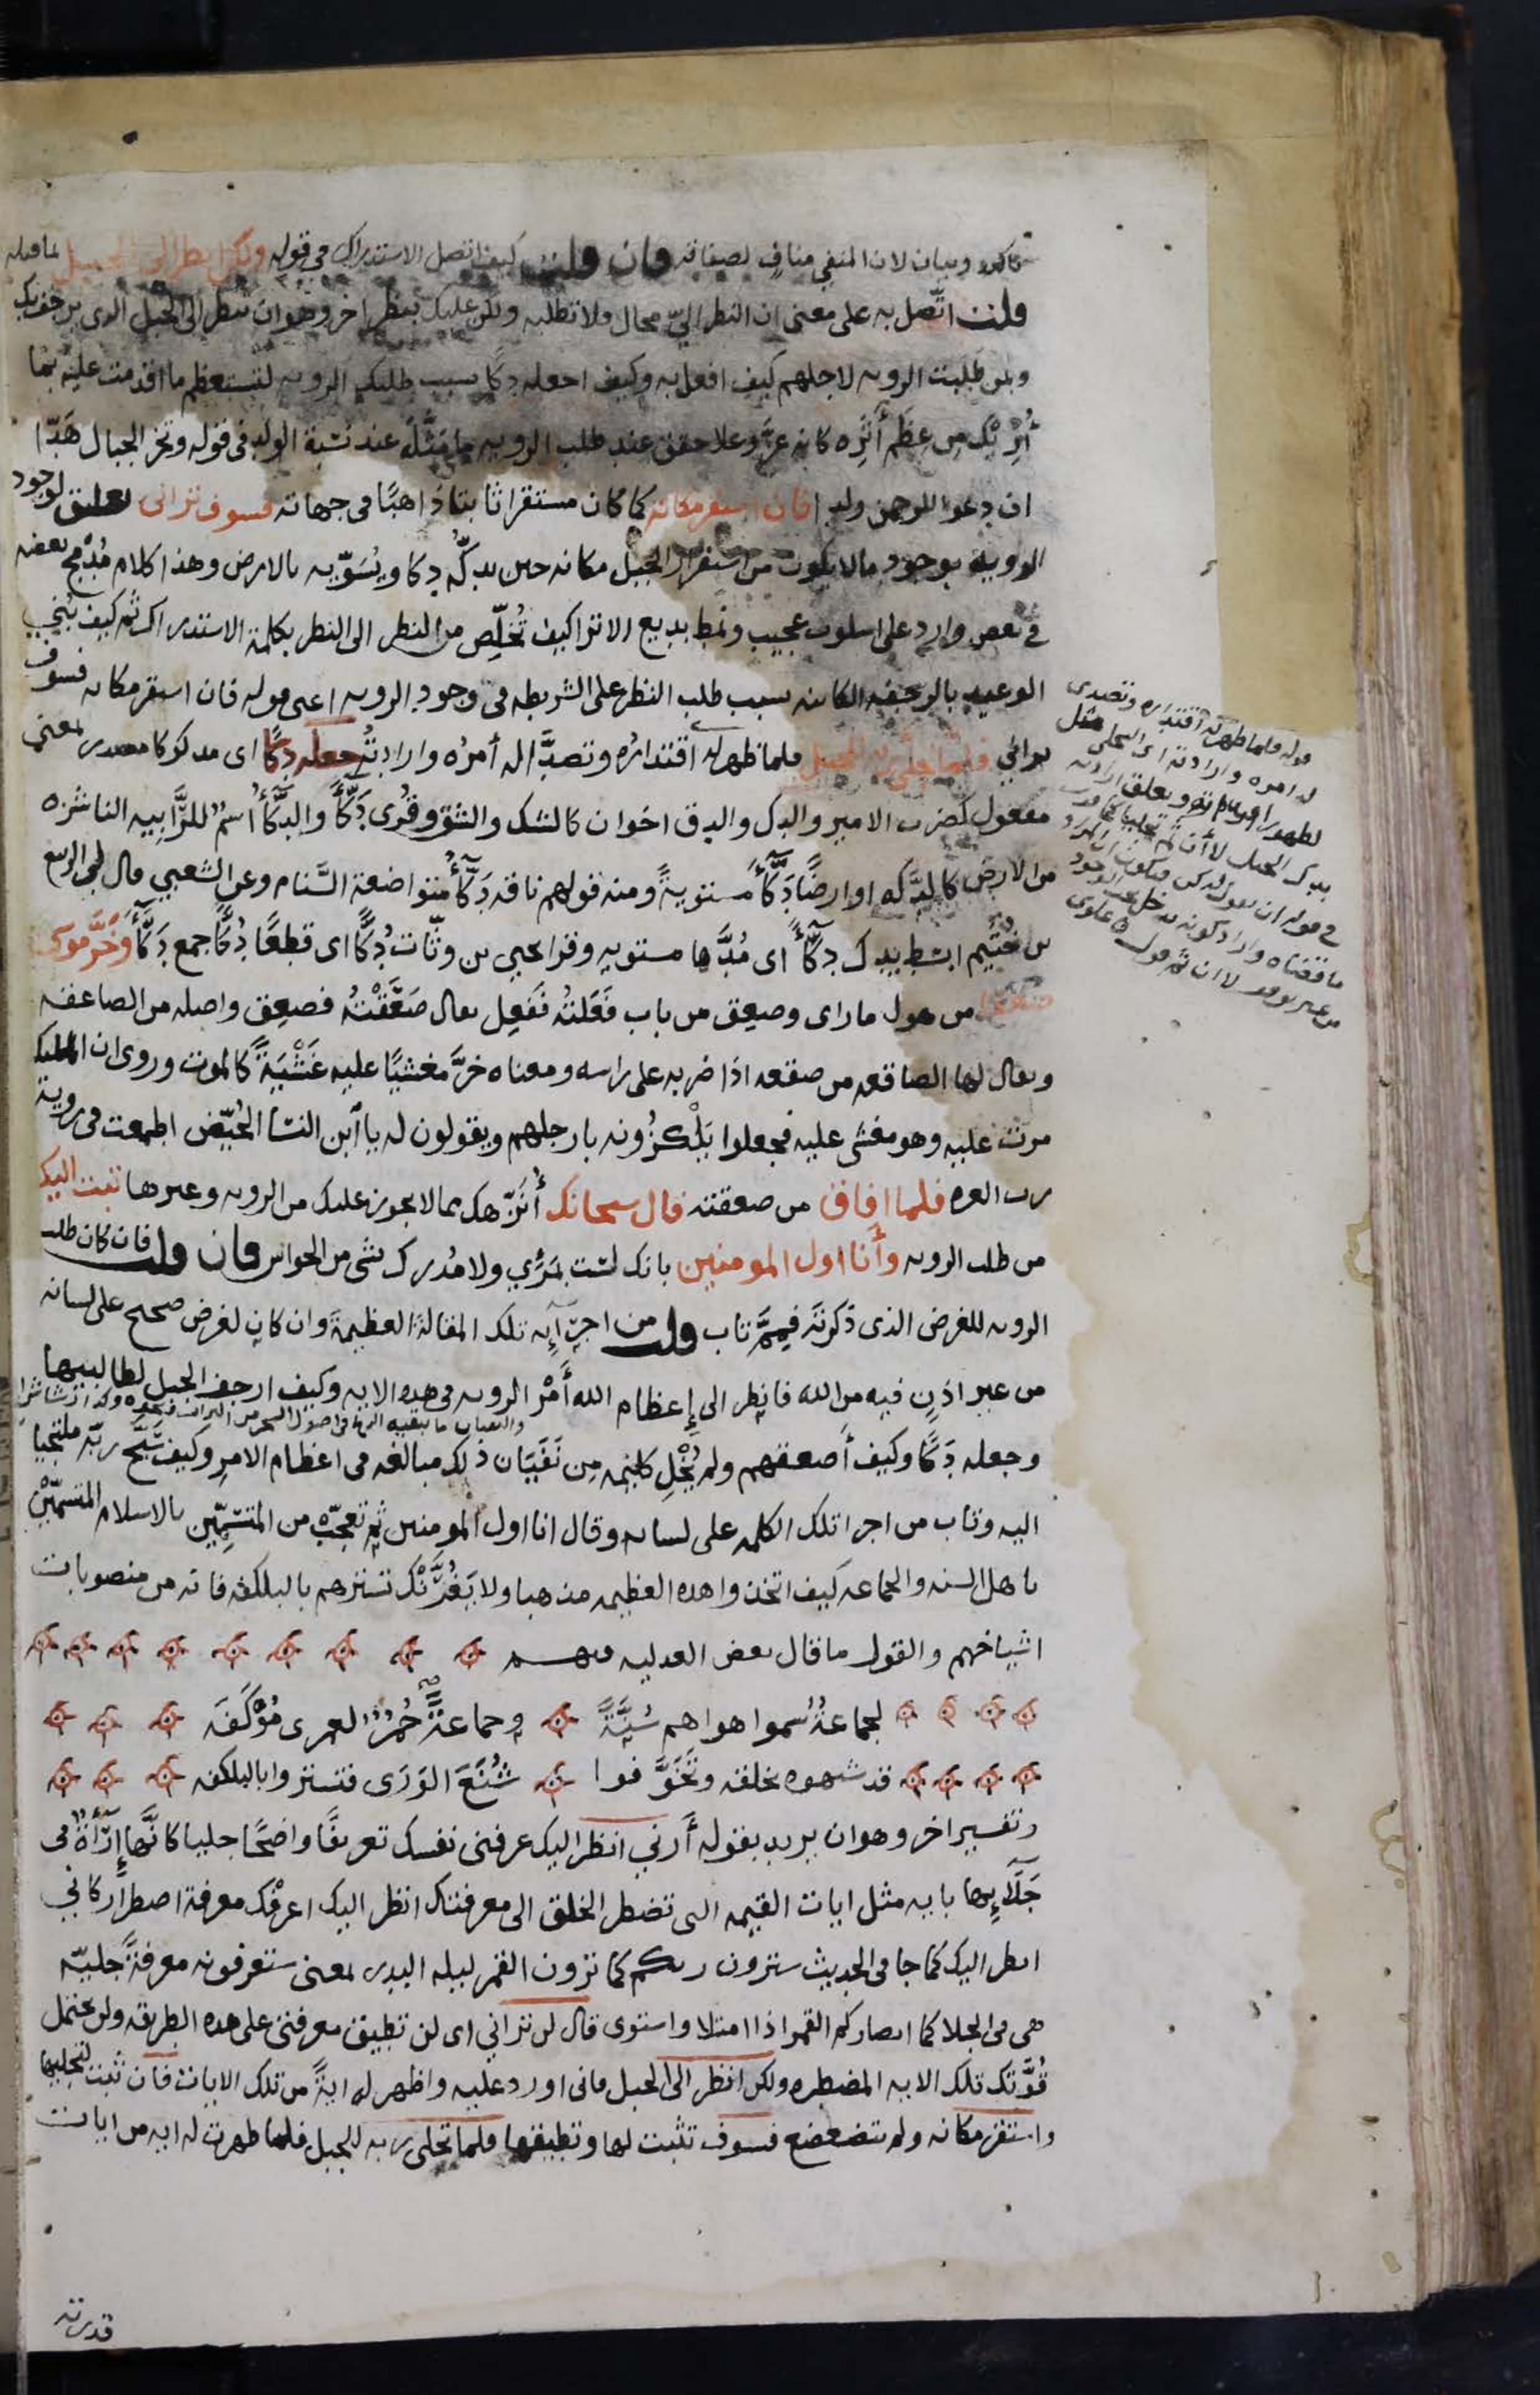 تاكيد وبيان لان المنفي مناف لصفاته فان قلت كيف اتصل الاستدراك في قوله ولكن انظر الى الجبل لما قبله
قلت اتّصل به على معنى ان النظر اليّ محال ولا تطلبه ولكن عليك بنظر اخر وهو ان تنظر الى الجبل الذي يرجف بك
وبمن طلبت الرويه لاجلهم كيف افعل به وكيف اجعله دكّا بسبب طلبك الرويه لتستعظم ما اقدمت عليه بما
أُرِيْك من عِظَم أثَرِه كانه عزّ وعلا حقق عند طلب الرويه ما مَثَّلَه عند نسبة الولد في قوله وتخر الجبال هَدّا
ان دعوا للرحمن ولدا فان استقر مكانه كما كان مستقرا ثابتا ذاهبًا في جهاته فسوف تراني تعليق لوجود
الروية بوجود ما لا يكون من استقرار الجبل مكانه حين يدكّه دكا ويُسَوّيه بالارض وهذا كلام مُدْمَج بعضه
في بعض وارد على اسلوب عجيب ونمط بديع الا ترا كيف تُخلِّص من النظر الى النظر بكلمة الاستدراك ثم كيف بُنِي
الوعيد بالرجفه الكائنه بسبب طلب النظر على الشريطه في وجود الرويه اعني قوله فان استقر مكانه فسوف
تراني فلما تجلى ربه للجبل فلما ظهر له اقتداره وتصدّا له أمرُه وارادتُه جعله دكّا اى مدكوكا مصدر بمعنى
مفعول كضرب الامير والدك والدق اخوان كالشك والشق وقُرى دَكَّآءَ والدكَّآءُ اسمٌ للرَّابيه الناشزه
من الارض كالدَّكه او ارضًا دَكَّآءَ مستويةً ومنه قولهم ناقه دَكَّآءُ متواضعة السَّنام وعن الشعبي قال لي الربيع
بن خُثَيم ابسط يدك دكَّآءَ اى مُدَّها مستويه وقرا يحيى بن وثّاب دُكًّا اى قطعًا دُكًّا جمع دَكَّآءَ وخَرَّ موسى
صعقا من هول ما راى وصعِق من باب فَعَلتُه ففَعِل يقال صَعَقْتُه فصعِق واصله من الصاعقه
ويقال لها الصاقعه من صقعه اذا ضربه على راسه ومعناه خرَّ مغشيًا عليه غَشْيَةً كالموت وروى ان الملايكه
مرت عليه وهو مغشى عليه فجعلوا يَلْكزُونه بارجلهم ويقولون له يا ابن النسا الحُيَّض اطمعت في روية
رب العزه فلما افاق من صعقته قال سبحانك أُنَزّهك مما لا يجوز عليك من الرويه وغيرها تبت اليك
من طلب الرويه وأنا اول المومنين بانك لست بمَرْئي ولا مُدرك بشي من الحواس فان قلت فان كان طلب
الرويه للغرض الذى ذكرتَه فمِمَّ تاب قلت من اجرآئِه تلك المقالةَ العظيمةَ وان كان لغرض صحيح على لسانه
من غير اذن فيه من الله فانظر الى إعظام الله أَمْر الرويه في هذه الايه وكيف ارجف الجبل لطالبيها
وجعله دَكّا وكيف أصعقهم ولم يُخْلِ كليمه من نَفَيَان ذلك مبالغه في اعظام الامر وكيف سبّح ربّه ملتجيا
اليه وتاب من اجرا تلك الكلمه على لسانه وقال انا اول المومنين ثم تعجّب من المتسمّين بالاسلام المتسمّين
باهل السنه والجماعه كيف اتخذوا هذه العظيمه مذهبا ولا يَغُرَّنَّك تسترهم بالبلكفه فانه من منصوبات
اشياخهم والقول ما قال بعض العدليه فيهم
لجماعةٌ سموا هواهم سُنَّةً وجماعةٌ حُمُرٌ لعمرى مُوْكَفَه
قد شبهوه بخلقه وتَخَوَّفوا شُنَعَ الوَرَى فتستروا بالبلكفه
وتفسير اخر وهو ان يريد بقوله أرني انظر اليك عرفنى نفسك تعريفًا واضحًا جليا كانَّها إرآءةٌ في
جَلَآئِها بايه مثل ايات القيمه التى تضطر الخلق الى معرفتك انظر اليك اعرفك معرفة اضطرار كاني
انظر اليك كما جا في الحديث سترون ربكم كما ترون القمر ليله البدر بمعنى ستعرفونه معرفةً جليّه
هى في الجلا كما ابصاركم القمر اذا امتلا واستوى قال لن تراني اى لن تطيق معرفتى على هذه الطريقه ولن تحتمل
قُوَّتك تلك الايه المضطره ولكن انظر الى الجبل فانى اورد عليه واظهر له ايةً من تلك الايات فان ثبت لتجليها
واستقر مكانه ولم يتضعضع فسوف تثبت لها وتطيقها فلما تجلى ربه للجبل فلما ظهرت له ايه من ايات
قدرته
قوله فلما ظهر له اقتداره وتصدى
له امره وارادته اى التجلى مثل